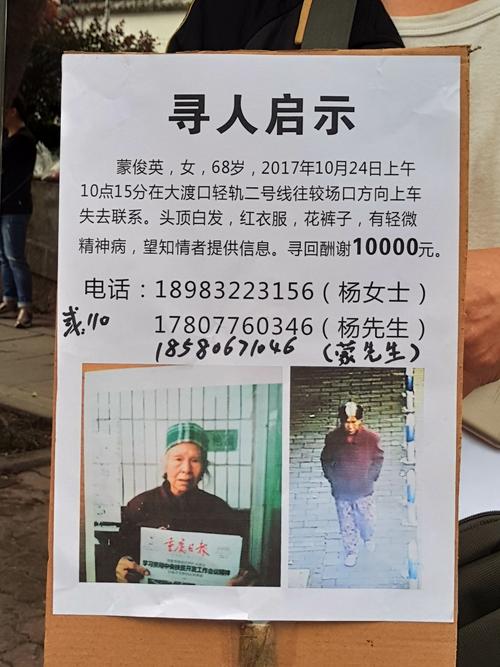 寻人启示
蒙俊英，女，68岁，2017年10月24日上午
10点15分在大渡口轻轨二号线往较场口方向上车
失去联系。头顶白发，红衣服，花裤子，有轻微
精神病，望知情者提供信息。寻回酬谢10000元。
电话：18983223156（杨女士）
或:110 17807760346（杨先生）
18580671046 （蒙先生）
重庆日报
学习贯彻中央扶贫开发工作会议精神